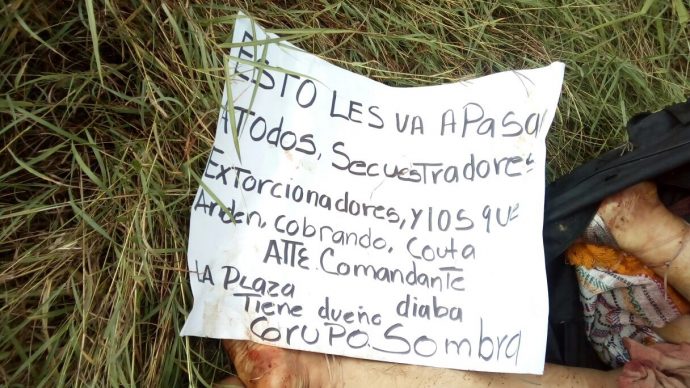 ESTO LES VA A PASAr
A TODOS, SECUESTRADORES
EXTORCIONADORES, Y LOS QUE
Anden, cobrando, Couta
ATTE. Comandante
LA PLAZA diaba
Tiene dueño
GrUPO. Sombra